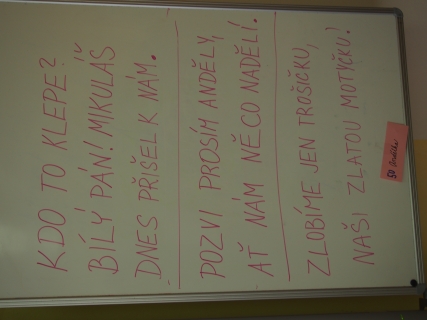 KDO TO KLEPE?
BÍLÝ PÁN! MIKULÁŠ
DNES PŘIŠEL K NÁM.
POZVI PROSÍM ANDĚLY,
AŤ NÁM NĚCO NADĚLÍ.
ZLOBÍME JEN TROŠIČKU,
NAŠI ZLATOU MOTYČKU!